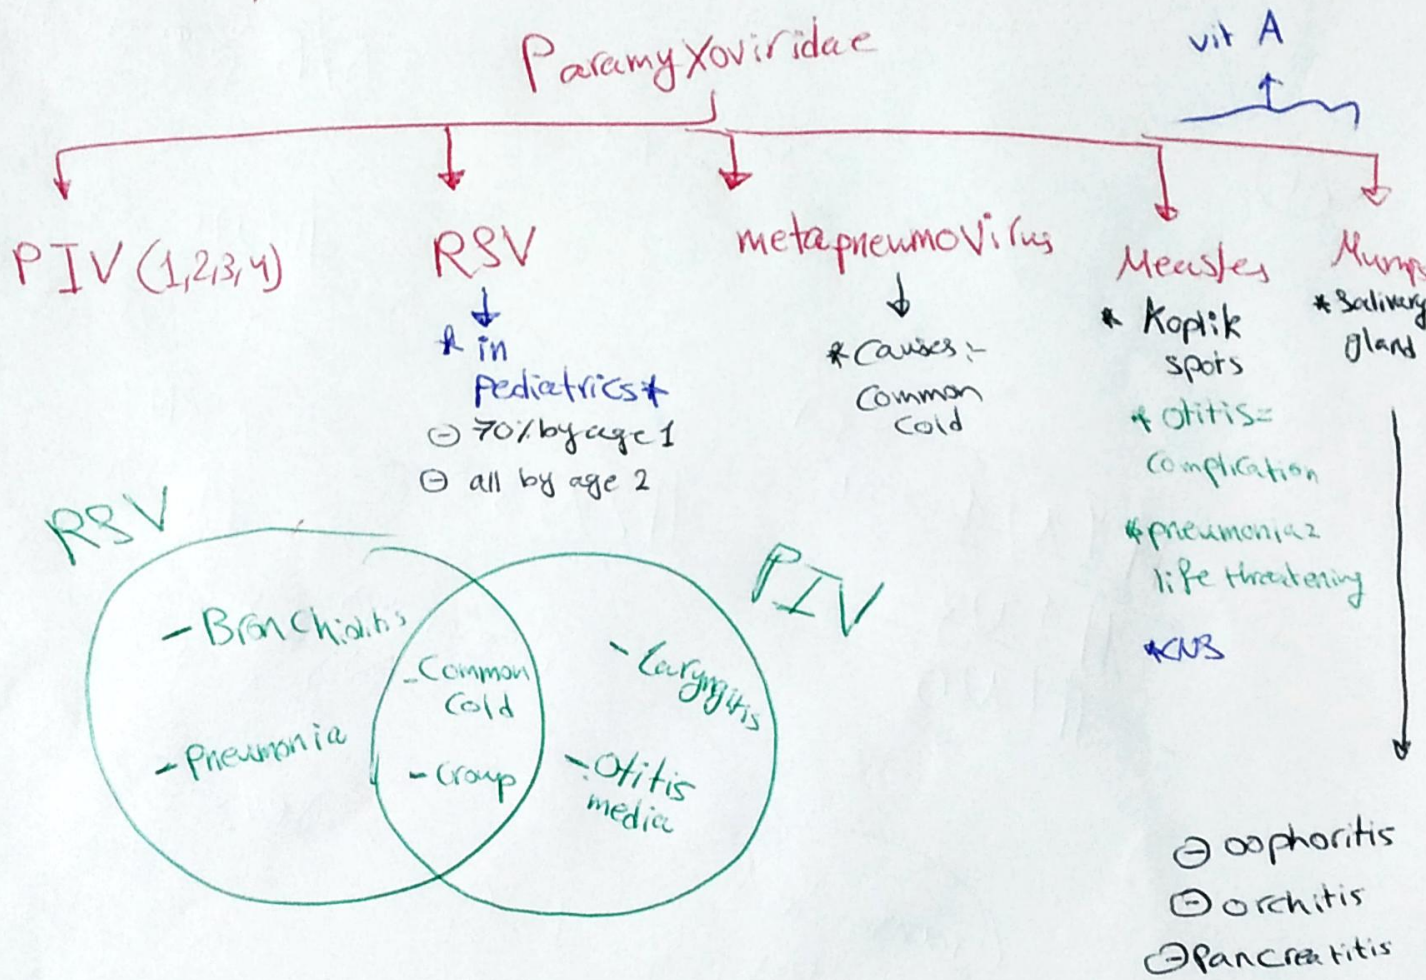 Paramyxoviridae
vit A
PIV (1,2,3,4)
RSV
* in
pediatrics*
⊖ 70% by age 1
⊖ all by age 2
metapneumovirus
* Causes :-
Common
Cold
Measles
* Koplik
spots
* Otitis=
Complication
* pneumonia=
life threatening
*CNS
Mumps
* Salivary
gland
⊖ oophoritis
⊖ orchitis
⊖ pancreatitis
RSV
- Bronchiolitis
- Pneumonia
- Common
Cold
- Croup
PIV
- Laryngitis
- Otitis
media